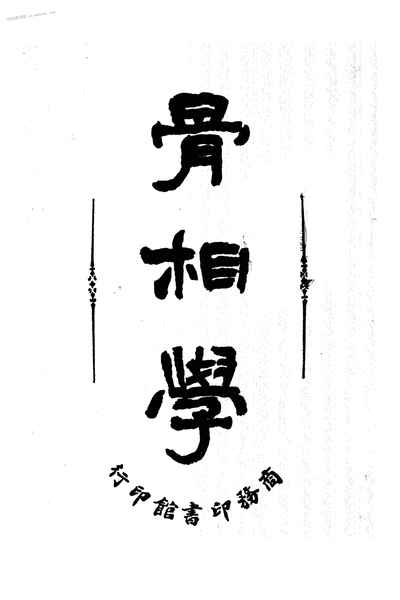 骨相學
商務印書館印行